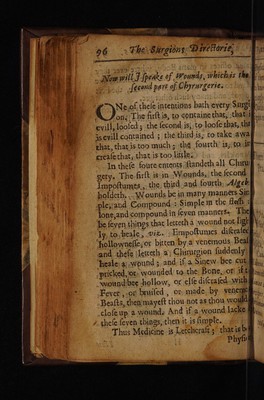 96 The Surgions Directorie,
Now will I speake of Wounds, which is the
second part of Chyrurgerie.
ONe of these intentions hath every Surgi
on, The first is, to containe that, that i
evill, loosed; the second is, to loose that, tha
is evill contained; the third is, to take awa
that, that is too much; the fourth is, to in
crease that, that is too little.
In these foure entents standeth all Chiru
gery. The first is in Wounds, the second
Impostumes, the third and fourth Algeb
holdeth. Wounds be in many manners Sim
ple, and Compound: Simple in the flesh a
lone, and compound in seven manners. The
be seven things that letteth a wound not ligh
ly to heale, viz. Empostumes diseased
hollownesse, or bitten by a venemous Beast
and these letteth a Chirurgion suddenly
heale a wound; and if a Sinew bee cut
pricked, or wounded to the Bone, or if t
wound bee hollow, or else diseased with
Fever, or bruised, or made by venem
Beasts, then mayest thou not as thou would
close up a wound. And if a wound lacke
these seven things, then it is simple.
Thus Medicine is Leechcraft; that is b
Physi